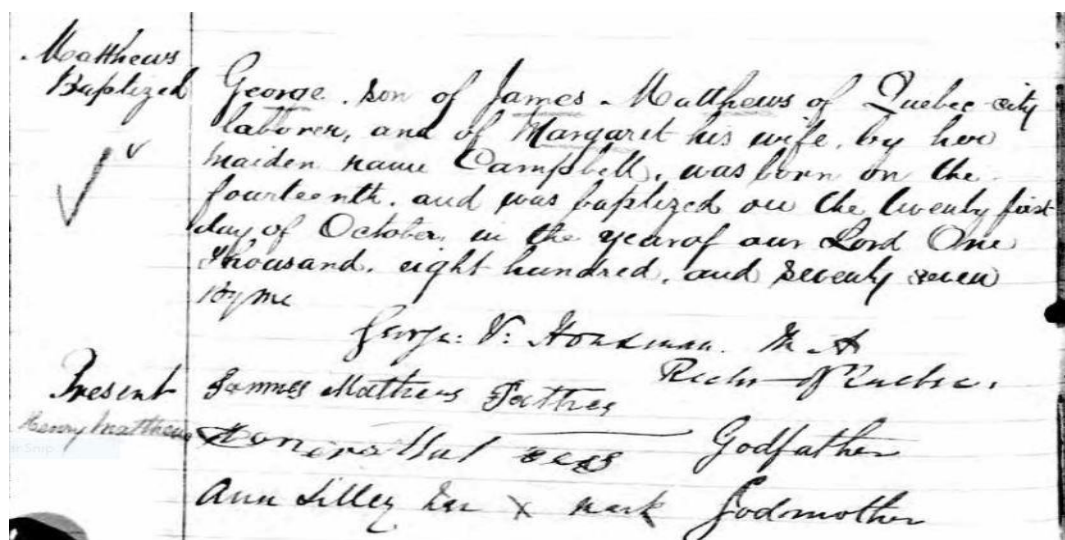 Matthews
Baptized
George. son of James Matthews of Quebec city
laborer, and of Margaret his wife, by her
maiden name Campbell, was born on the
fourteenth, and was baptized on the twenty first
day of October, in the year of our Lord One
Thousand, eight hundred, and seventy seven
By me
George: V: Housman. M A
Rector of Quebec.
Present
James Mathews Father
Henry Matthews
Godfather
Ann Lilley her X mark Godmother